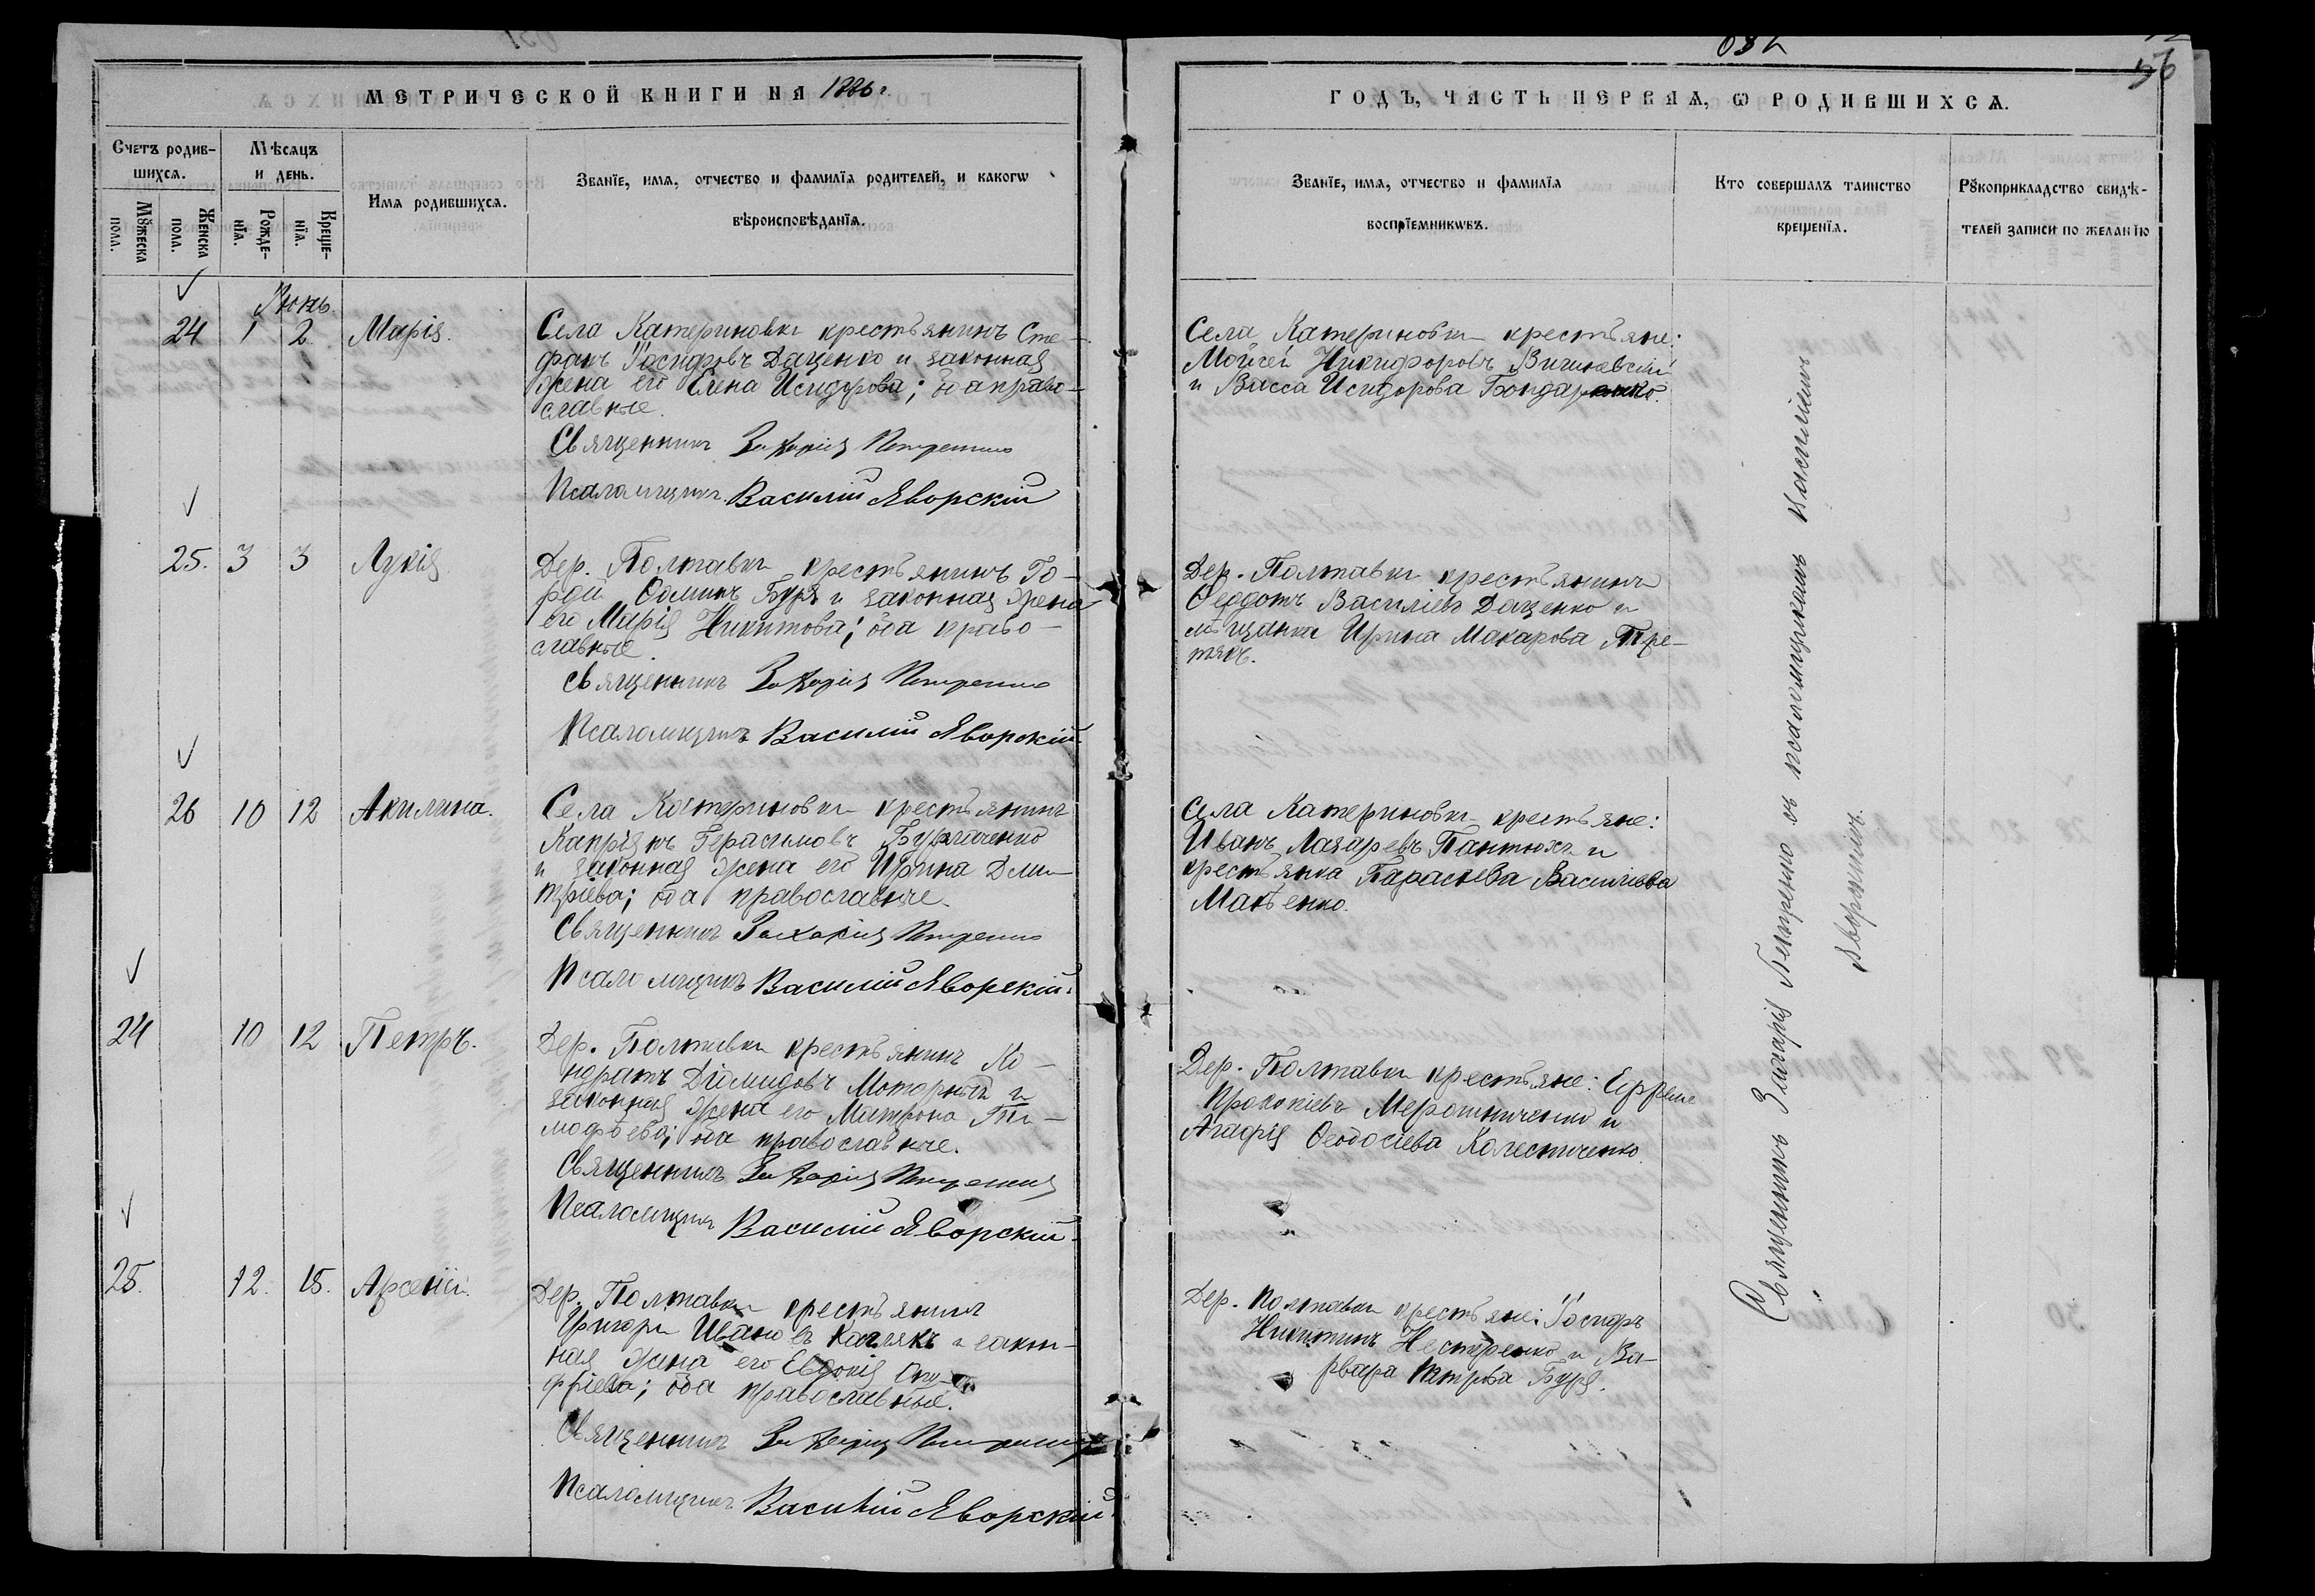 632
56
МЕТРИЧЕСКОЙ КНИГИ НА 1886 г.
Счетъ родив-
шихсѧ.
Мѣсѧцъ
и день.
Имѧ родившихсѧ.
Званїе, имѧ, отчество и фамилїѧ родителей, и какогѡ
вѣроисповѣданїѧ.
Мꙋжеска
пола.
Женска
пола.
Рожде-
нїѧ.
Креще-
нїѧ.
Іюнь
24 1 2 Марія.
Села Катериновки крестьянинъ Сте-
фанъ Іосифовъ Даценко и законная
жена его Елена Исидорова; оба право-
славные.
Священникъ Захарія Петренко
Псаломщикъ Василій Яворскій
25. 3 3 Лукія
Дер. Полтавки крестьянинъ Го-
рдій Ѳоминъ Буря и законная жена
его Марія Никитова; оба право-
славные.
Священникъ Захарія Петренко
Псаломщикъ Василій Яворскій.
26 10 12 Акилина.
Села Катериновки крестьянинъ
Капріянъ Герасимовъ
и законная жена его Ирина Дми-
тріева; оба православные.
Священникъ Захарія Петренко
Псаломщикъ Василій Яворскій.
24 10 12 Петръ.
Дер. Полтавки крестьянинъ Ко-
ндратъ Діомидовъ Моторный и
законная жена его Матрона Ти-
мофѣева; оба православные.
Священникъ Захарія Петренко
Псаломщикъ Василій Яворскій.
25. 12. 15. Арсеній.
Дер. Полтавки крестьянинъ
Григорій Ивановъ и закон-
ная жена его Евдокія Ону-
фріева; оба православные.
Священникъ Захарія Петренко
Псаломщикъ Василій Яворскій.
ГОДЪ, ЧАСТЬ ПЕРВАЯ, Ѡ РОДИВШИХСѦ.
Званїе, имѧ, отчество и фамилїѧ
воспрїемникѡвъ.
Кто совершалъ таинство
крещенїѧ.
Рꙋкоприкладство свидѣ-
телей записи по желанїю
Села Катериновки крестьяне:
Мойсей Никифоровъ Вишневскій
и Васса Исидорова Бондаренко.
Дер. Полтавки крестьянинъ
Ѳедотъ Василіевъ Даценко и
мѣщанка Ирина Макарова Тре-
тякъ.
Села Катериновки крестьяне:
Иванъ Лазаревъ Пантюхъ и
крестьянка Параскева Василіева
Макѣенко.
Дер. Полтавки крестьяне: Ефремъ
Прокопіевъ Мерошниченко и
Агафія Ѳеодосіева Колесниченко.
Дер. Полтавки крестьяне: Іосифъ
Никитинъ Нестеренко и Ва-
рвара Петрова Буря.
Священникъ Захарія Петренко съ псаломщикомъ Василіемъ
Яворскимъ.